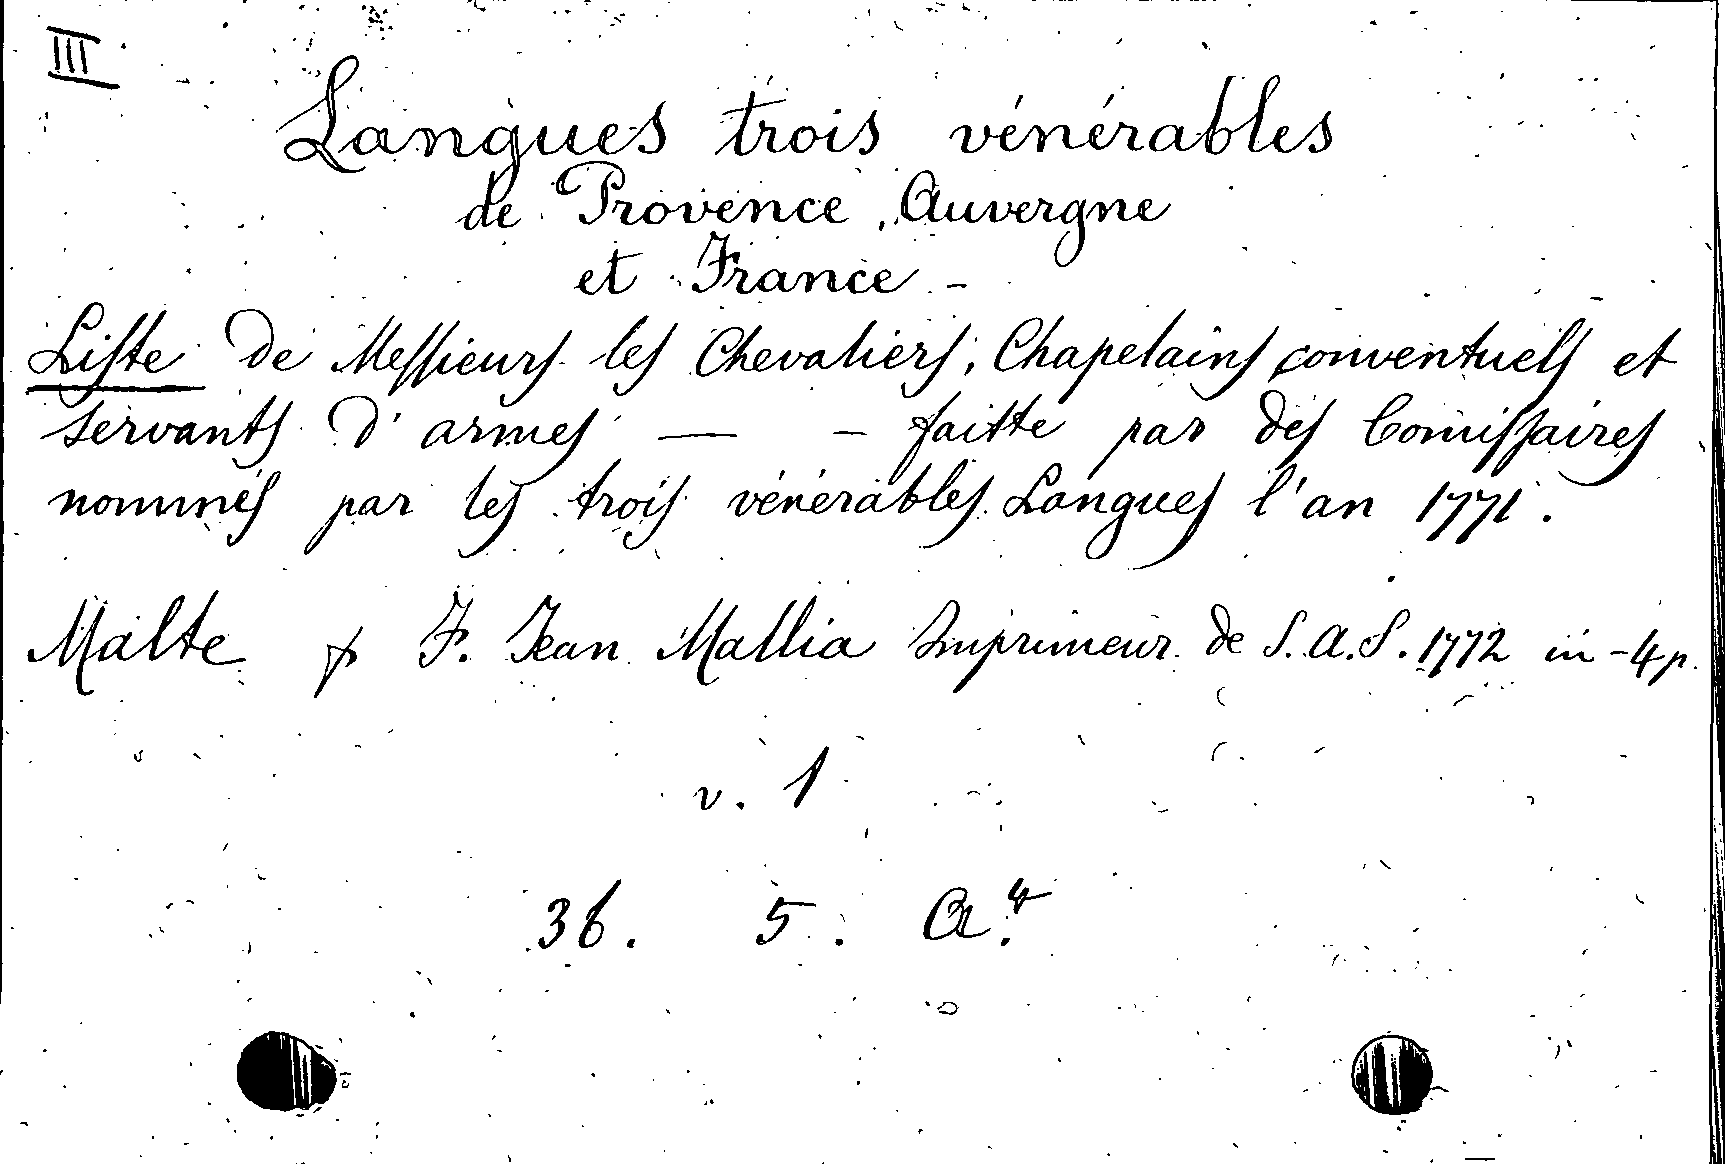 III
Langues trois vénérables
de Provence, Auvergne
et France -
Liste de Messieurs les Chevaliers, Chapelains conventuels et
servants d'armes — - faitte par des Comissaires
nommés par les trois vénérables Langues l'an 1771.
Malte F. Jean Mallia Imprimeur de S.A.S. 1772 in-4p.
v. 1
36. 5. A.4